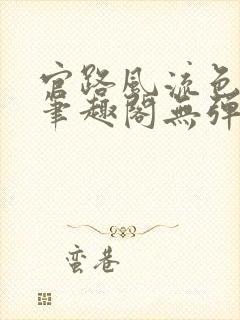 官路風流色
筆趣閣無彈
蛮巷